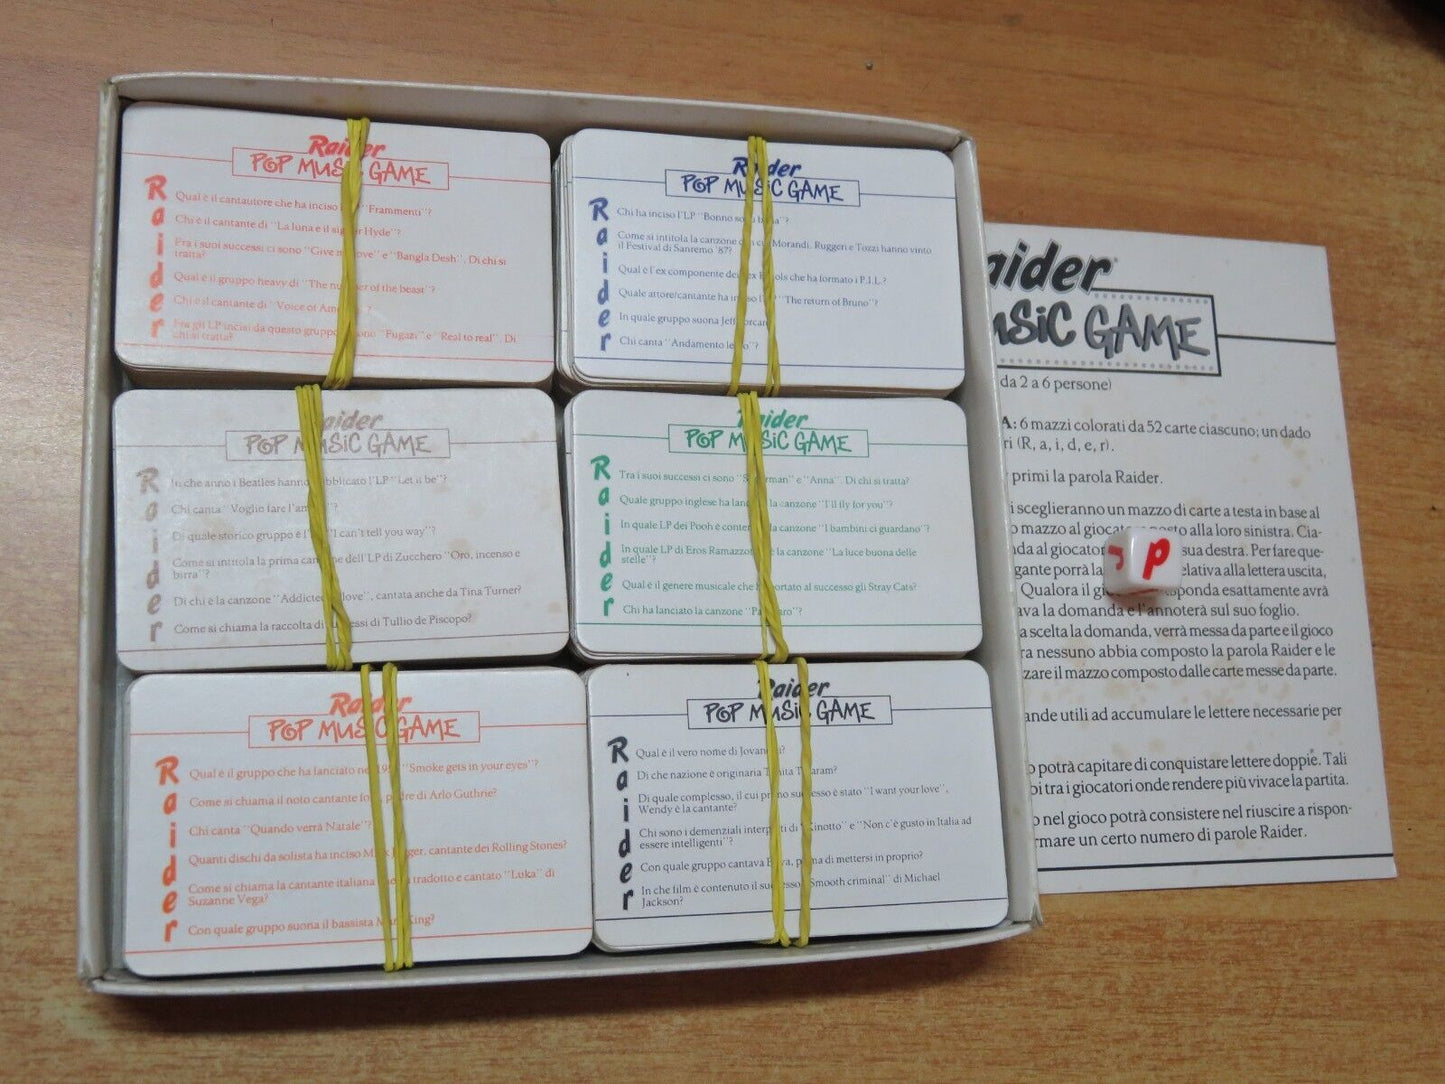 Raider
POP MUSiC GAME
R Qual è il cantautore che ha inciso "Frammenti"?
a Chi è il cantante di "La luna e il signor Hyde"?
i Fra i suoi successi ci sono "Give me love" e "Bangla Desh". Di chi si
tratta?
d Qual è il gruppo heavy di "The number of the beast"?
e Chi è il cantante di "Voice of America"?
r Fra gli LP incisi da questo gruppo ci sono "Fugazi" e "Real to reel". Di
chi si tratta?
Raider
POP MUSiC GAME
R Chi ha inciso l'LP "Bonno soli bana"?
a Come si intitola la canzone con cui Morandi, Ruggeri e Tozzi hanno vinto
il Festival di Sanremo '87?
i Qual è l'ex componente dei Sex Pistols che ha formato i P.I.L.?
d Quale attore/cantante ha inciso l'LP "The return of Bruno"?
e In quale gruppo suona Jeff Porcaro?
r Chi canta "Andamento lento"?
Raider
POP MUSiC GAME
R In che anno i Beatles hanno pubblicato l'LP "Let it be"?
a Chi canta "Voglio fare l'am
i Di quale storico gruppo è l' "I can't tell you way"?
d Come si intitola la prima canzone dell'LP di Zucchero "Oro, incenso e
birra"?
e Di chi è la canzone "Addicted to love", cantata anche da Tina Turner?
r Come si chiama la raccolta di successi di Tullio de Piscopo?
Raider
POP MUSiC GAME
R Tra i suoi successi ci sono "Superman" e "Anna". Di chi si tratta?
a Quale gruppo inglese ha lanciato la canzone "I'll fly for you"?
i In quale LP dei Pooh è contenuta la canzone "I bambini ci guardano"?
d In quale LP di Eros Ramazzotti è la canzone "La luce buona delle
stelle"?
e Qual è il genere musicale che ha portato al successo gli Stray Cats?
r Chi ha lanciato la canzone "Pa aro"?
Raider
POP MUSiC GAME
R Qual è il gruppo che ha lanciato nel 195 "Smoke gets in your eyes"?
a Come si chiama il noto cantante folk padre di Arlo Guthrie?
i Chi canta "Quando verrà Natale"?
d Quanti dischi da solista ha inciso Mick Jagger, cantante dei Rolling Stones?
e Come si chiama la cantante italiana che ha tradotto e cantato "Luka" di
Suzanne Vega?
r Con quale gruppo suona il bassista Mark King?
Raider
POP MUSiC GAME
R Qual è il vero nome di Jovanotti?
a Di che nazione è originaria Tanita Tikaram?
i Di quale complesso, il cui primo successo è stato "I want your love",
Wendy è la cantante?
d Chi sono i demenziali interpreti di "Kinotto" e "Non c'è gusto in Italia ad
essere intelligenti"?
e Con quale gruppo cantava prima di mettersi in proprio?
r In che film è contenuto il successo "Smooth criminal" di Michael
Jackson?
aider
uSiC GAME
da 2 a 6 persone)
A: 6 mazzi colorati da 52 carte ciascuno; un dado
ri (R, a, i, d, e, r).
primi la parola Raider.
i sceglieranno un mazzo di carte a testa in base al
o mazzo al giocatore posto alla loro sinistra. Cia-
nda al giocatore sua destra. Per fare que-
gante porrà la relativa alla lettera uscita,
Qualora il gio risponda esattamente avrà
ava la domanda e l'annoterà sul suo foglio.
a scelta la domanda, verrà messa da parte e il gioco
ra nessuno abbia composto la parola Raider e le
zare il mazzo composto dalle carte messe da parte.
ande utili ad accumulare le lettere necessarie per
o potrà capitare di conquistare lettere doppie. Tali
bi tra i giocatori onde rendere più vivace la partita.
o nel gioco potrà consistere nel riuscire a rispon-
rmare un certo numero di parole Raider.